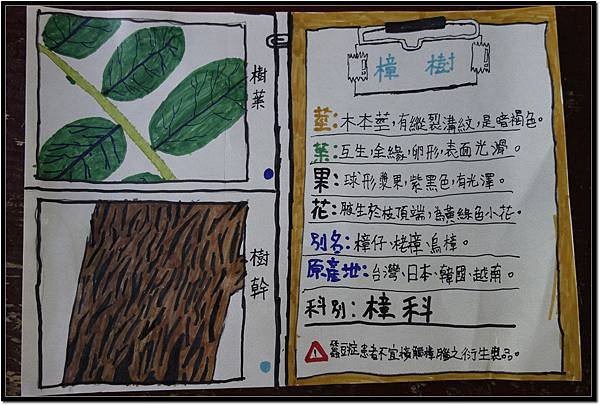 樹葉
樹幹
樟樹
莖:木本莖,有縱裂溝紋,是暗褐色。
葉:互生,全緣,卵形,表面光滑。
果:球形漿果,紫黑色,有光澤。
花:腋生於枝頂端,為黃綠色小花。
別名:樟仔、栳樟、烏樟。
原產地:台灣、日本、韓國、越南。
科別:樟科
蠶豆症患者不宜接觸樟腦之衍生製品。